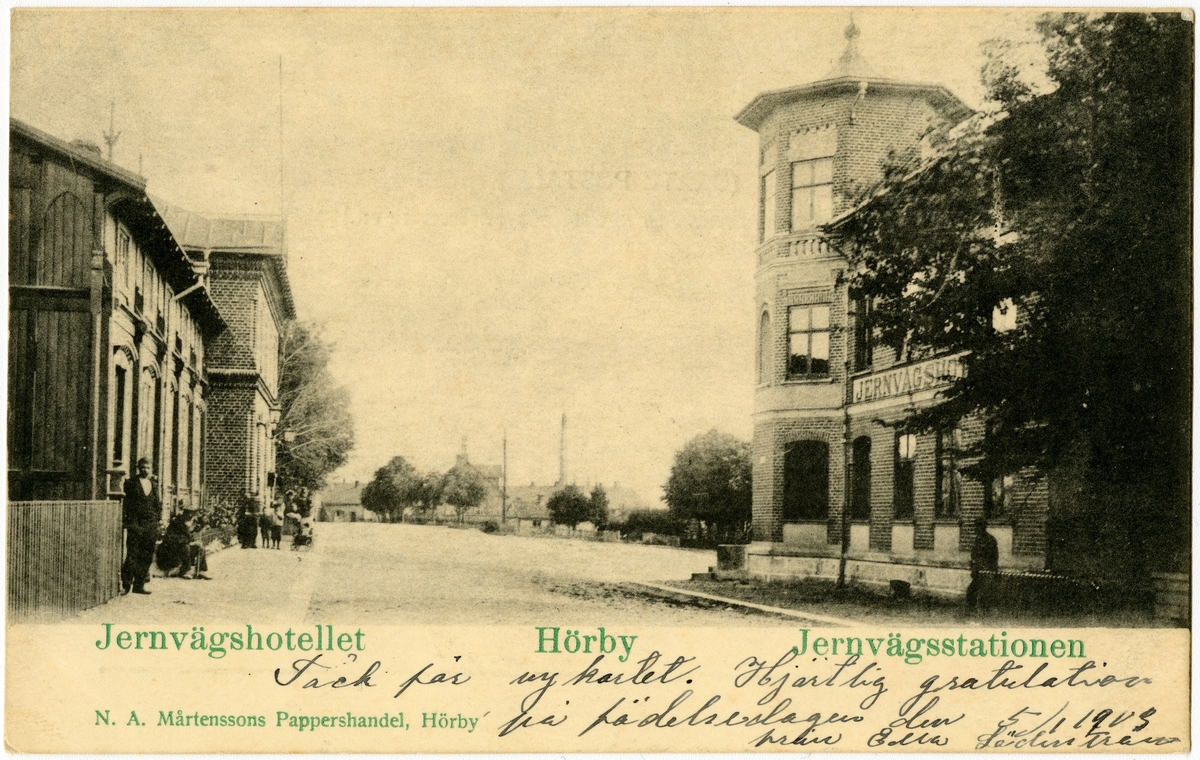 JERNVÄGSHO
Jernvägshotellet Hörby Jernvägsstationen
Tack för vykortet. Hjärtlig gratulation
N. A. Mårtenssons Pappershandel, Hörby
på födelsedagen den 5/1 1903
från Edla Söderström